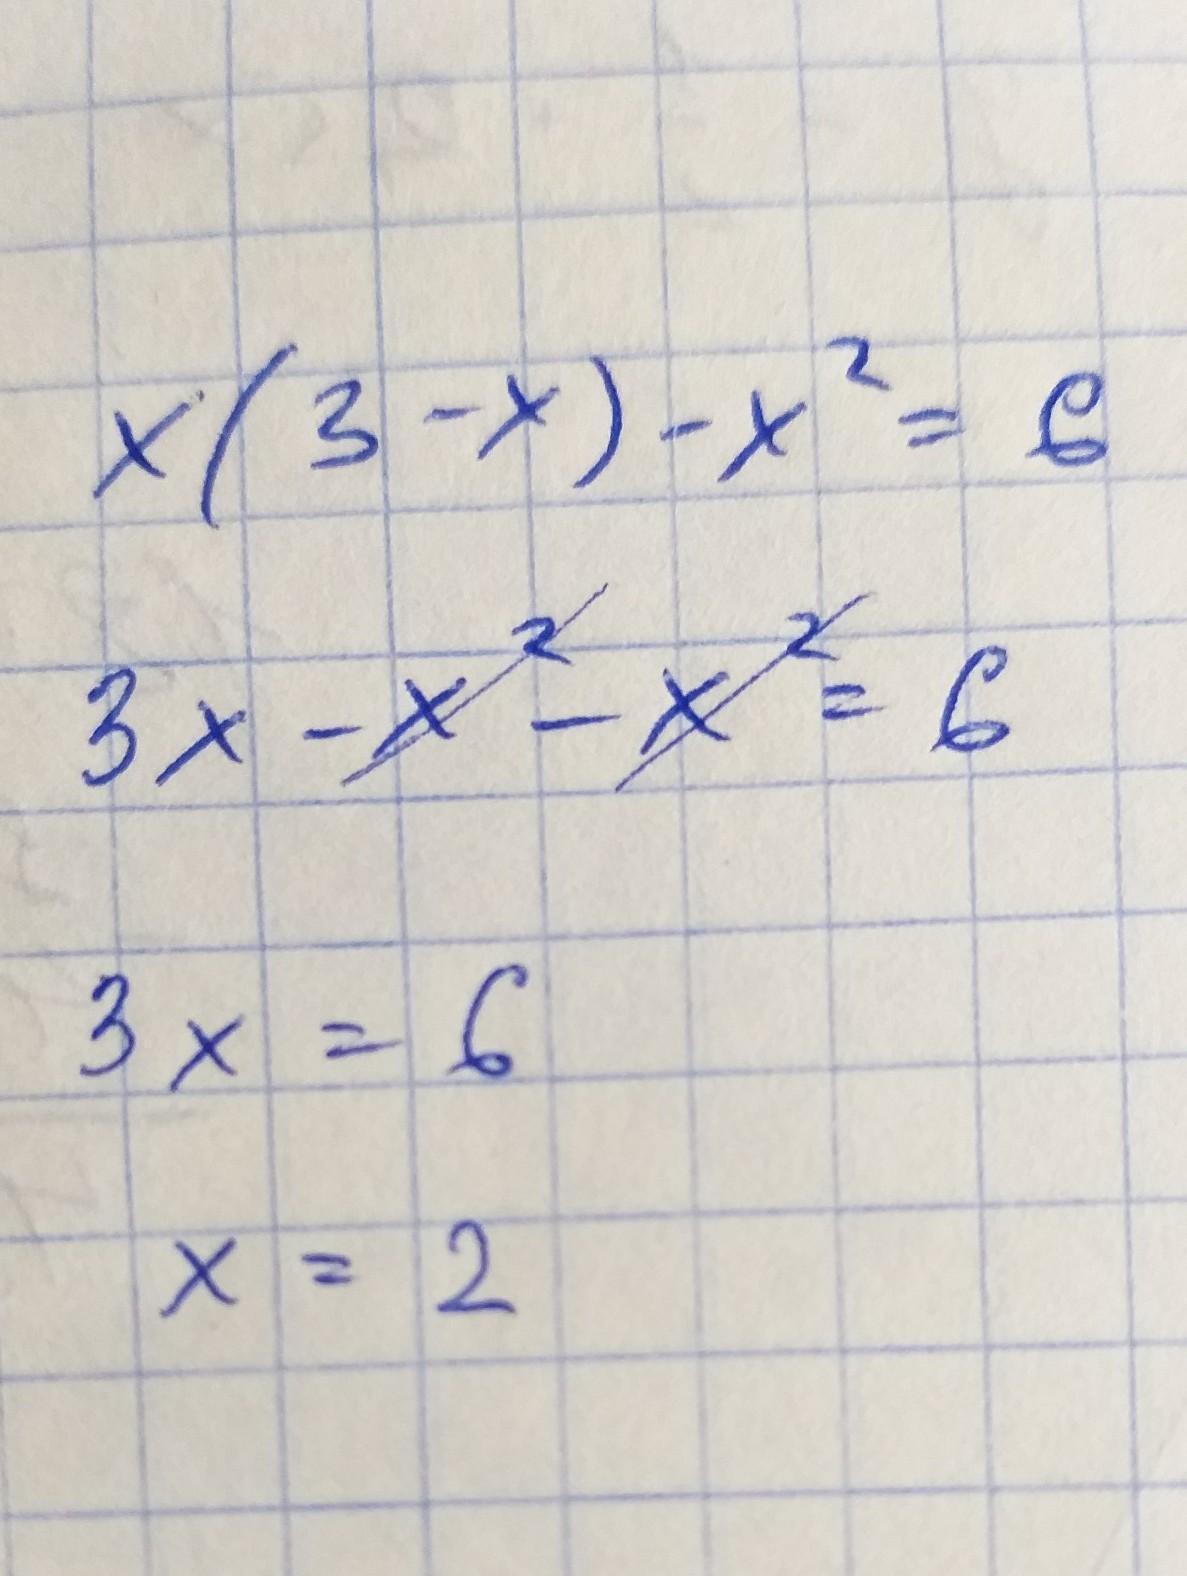 x(3-x)-x²=6
3x-x²-x²=6
3x=6
x=2